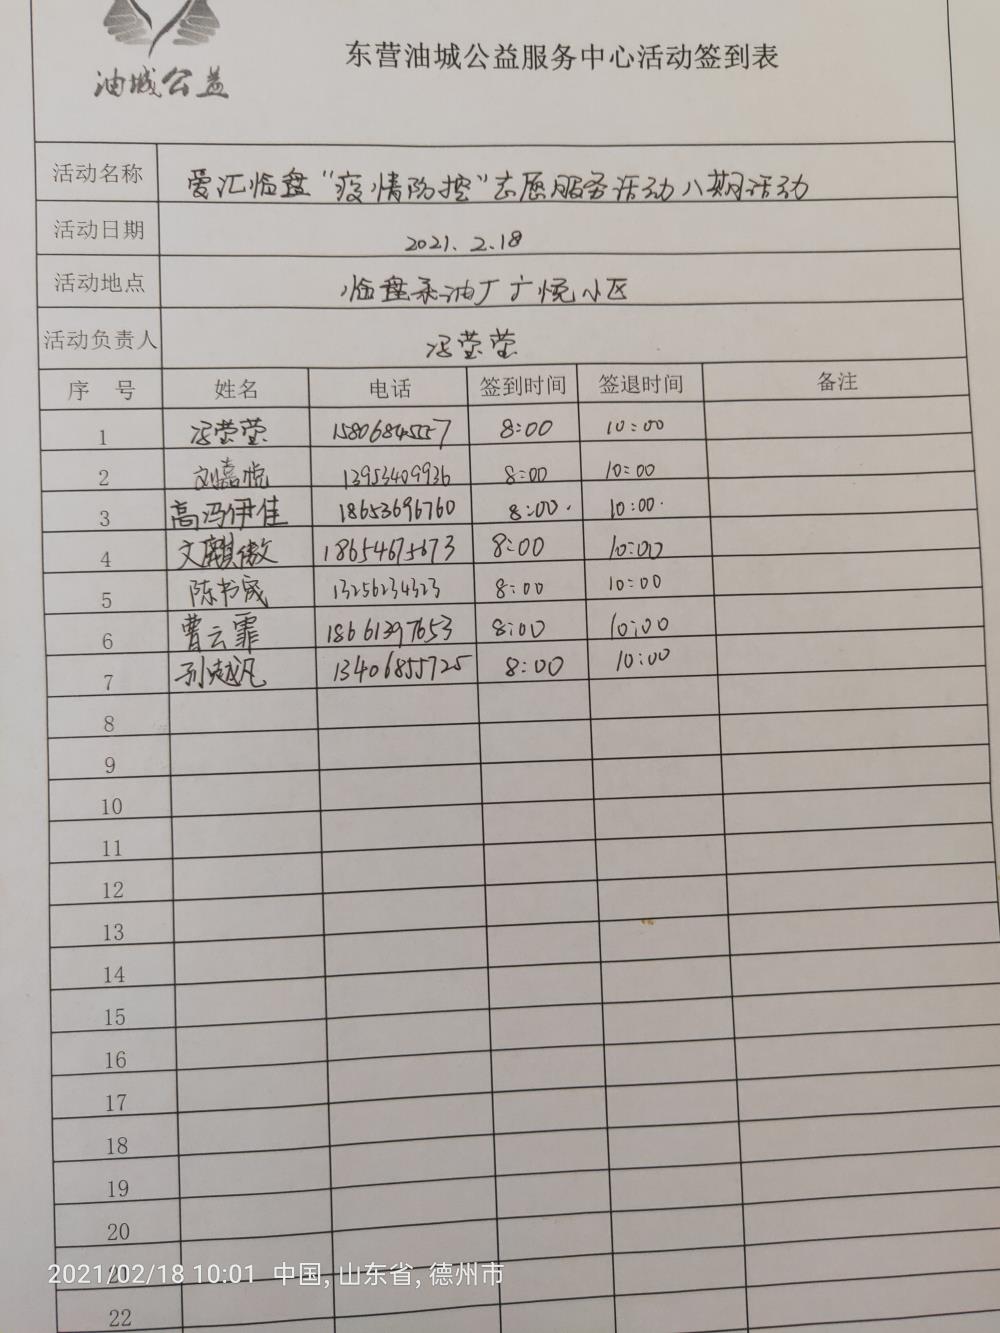 油城公益
东营油城公益服务中心活动签到表
活动名称 爱汇临盘“疫情防控”志愿服务活动八期活动
活动日期 2021.2.18
活动地点 临盘采油厂广悦小区
活动负责人 冯莹莹
序号 姓名 电话 签到时间 签退时间 备注
1 冯莹莹 15806845557 8:00 10:00
2 刘嘉悦 13953409936 8:00 10:00
3 高冯伊佳 18653696760 8:00. 10:00.
4 文麒傲 18654675673 8:00 10:00
5 陈书晟 13256234323 8:00 10:00
6 曹云霏 18661397653 8:00 10:00
7 孙赵凡 13406855725 8:00 10:00
8
9
10
11
12
13
14
15
16
17
18
19
20
21
2021/02/18 10:01 中国, 山东省, 德州市
22